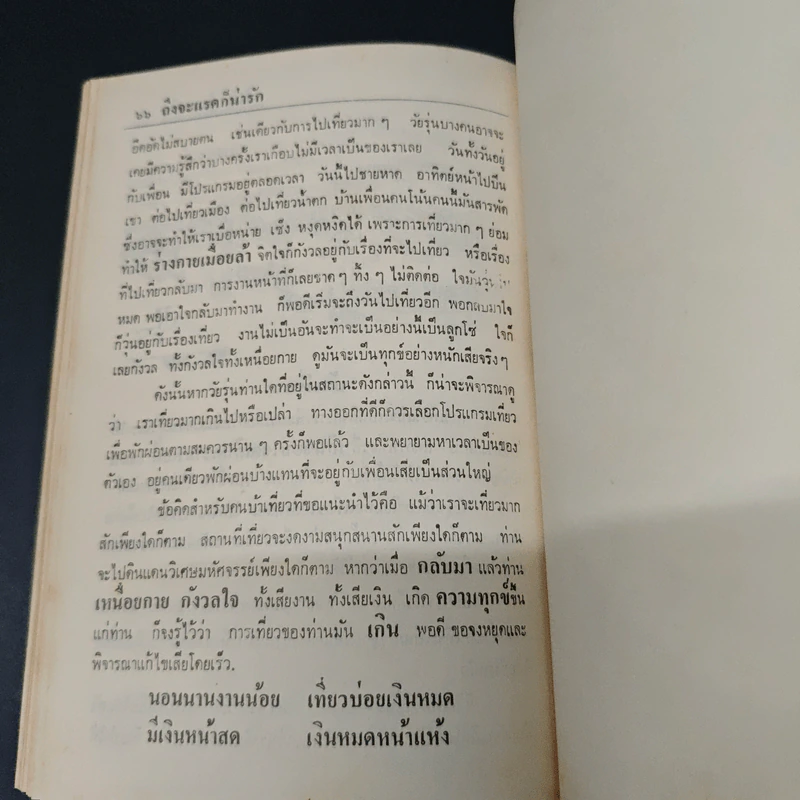 ๖๖ ถึงจะแรดก็น่ารัก
อึดอัดไม่สบายตน เช่นเดียวกับการไปเที่ยวมาก ๆ วัยรุ่นบางคนอาจจะ
เคยมีความรู้สึกว่าบางครั้งเราเกือบไม่มีเวลาเป็นของเราเลย วันทั้งวันอยู่
กับเพื่อน มีโปรแกรมอยู่ตลอดเวลา วันนี้ไปชายหาด อาทิตย์หน้าไปปีน
เขา ต่อไปเที่ยวเมือง ต่อไปเที่ยวน้ำตก บ้านเพื่อนคนโน้นคนนี้มันสารพัด
ซึ่งอาจจะทำให้เราเบื่อหน่าย เซ็ง หงุดหงิดได้ เพราะการเที่ยวมาก ๆ ย่อม
ทำให้ ร่างกายเมื่อยล้า จิตใจก็กังวลอยู่กับเรื่องที่จะไปเที่ยว หรือเรื่อง
ที่ไปเที่ยวกลับมา การงานหน้าที่ก็เลยขาด ๆ ทิ้ง ๆ ไม่ติดต่อ ใจมันวุ่น
หมด พอเอาใจกลับมาทำงาน ก็พอดีเริ่มจะถึงวันไปเที่ยวอีก พอกลับมาใจ
ก็วุ่นอยู่กับเรื่องเที่ยว งานไม่เป็นอันจะทำจะเป็นอย่างนี้เป็นลูกโซ่ ใจก็
เลยกังวล ทั้งกังวลใจทั้งเหนื่อยกาย ดูมันจะเป็นทุกข์อย่างหนักเสียจริง ๆ
ดังนั้นหากวัยรุ่นท่านใดที่อยู่ในสถานะดังกล่าวนี้ ก็น่าจะพิจารณาดู
ว่า เราเที่ยวมากเกินไปหรือเปล่า ทางออกที่ดีก็ควรเลือกโปรแกรมเที่ยว
เพื่อพักผ่อนตามสมควรนาน ๆ ครั้งก็พอแล้ว และพยายามหาเวลาเป็นของ
ตัวเอง อยู่คนเดียวพักผ่อนบ้างแทนที่จะอยู่กับเพื่อนเสียเป็นส่วนใหญ่
ข้อคิดสำหรับคนบ้าเที่ยวที่ขอแนะนำไว้คือ แม้ว่าเราจะเที่ยวมาก
สักเพียงใดก็ตาม สถานที่เที่ยวจะงดงามสนุกสนานสักเพียงใดก็ตาม ท่าน
จะไปดินแดนวิเศษมหัศจรรย์เพียงใดก็ตาม หากว่าเมื่อ กลับมา แล้วท่าน
เหนื่อยกาย กังวลใจ ทั้งเสียงาน ทั้งเสียเงิน เกิด ความทุกข์ขึ้น
แก่ท่าน ก็จงรู้ไว้ว่า การเที่ยวของท่านมัน เกิน พอดี ขอจงหยุดและ
พิจารณาแก้ไขเสียโดยเร็ว.
นอนนานงานน้อย เที่ยวบ่อยเงินหมด
มีเงินหน้าสด เงินหมดหน้าแห้ง